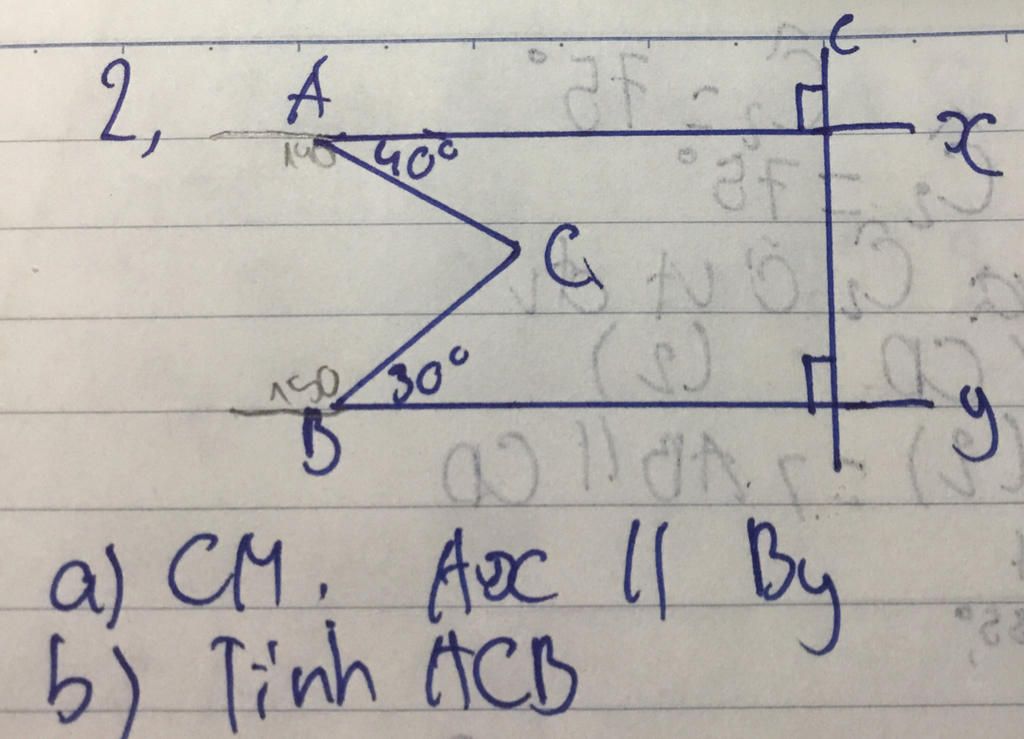 2,
A
c
x
140
40°
C
150
30°
B
y
a) CM. Ax // By
b) Tính ACB